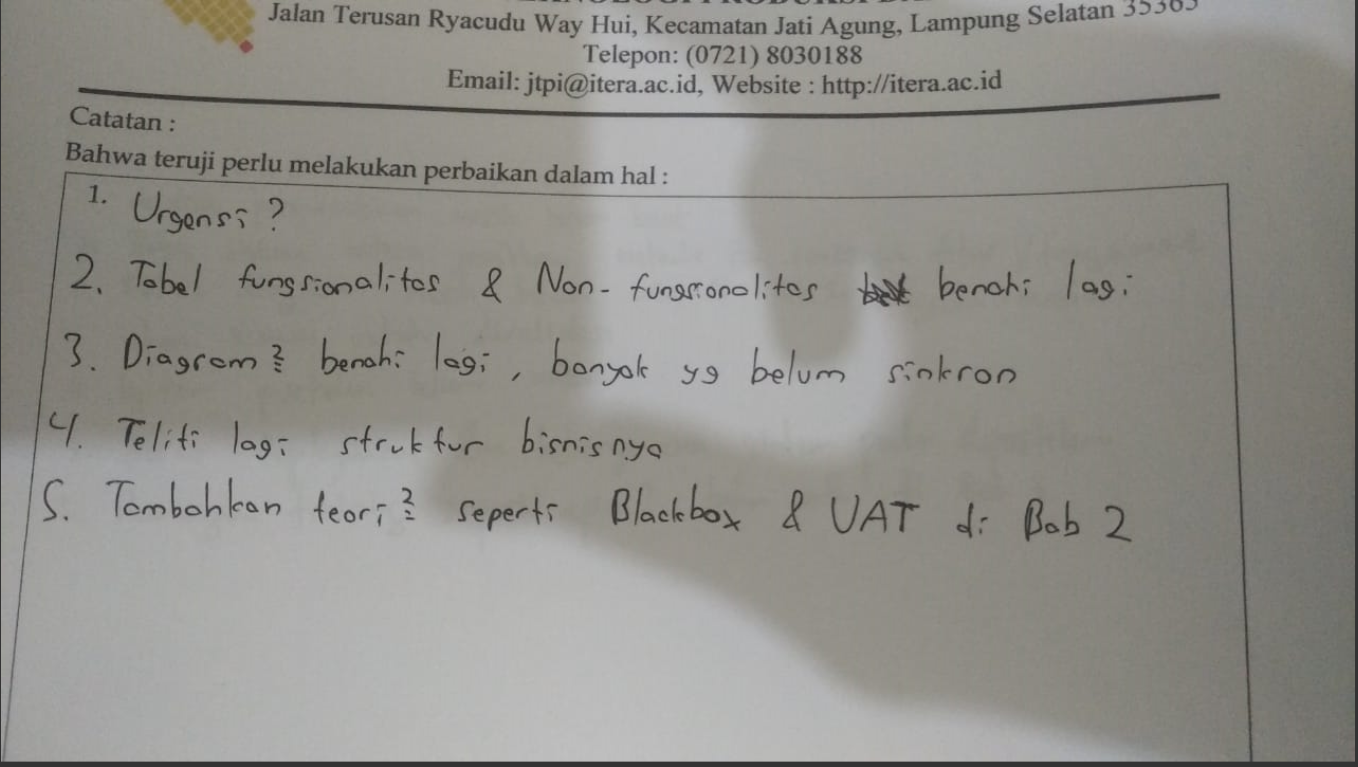 Jalan Terusan Ryacudu Way Hui, Kecamatan Jati Agung, Lampung Selatan 35365
Telepon: (0721) 8030188
Email: jtpi@itera.ac.id, Website : http://itera.ac.id
Catatan :
Bahwa teruji perlu melakukan perbaikan dalam hal :
1. Urgensi ?
2. Tabel fungsionalitas & Non-fungsionalitas benahi lagi
3. Diagram² benahi lagi, banyak yg belum sinkron
4. Teliti lagi struktur bisnisnya
5. Tambahkan teori² seperti Blackbox & UAT di Bab 2